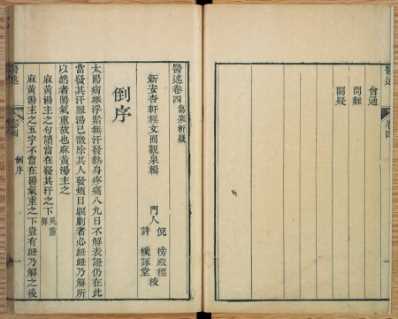 會通
問難
闕疑
醫述卷四 傷寒析疑
新安杏軒程文囿觀泉編
門人
倪榜殿
許樸
校
倒序
太陽病脈浮緊無汗發熱身疼痛八九日不解表證仍在此
當發其汗服湯已微除其人發煩目瞑劇者必衄衄乃解所
以然者陽氣重故也麻黃湯主之
麻黃湯主之句語當在發其汗之下
麻黃湯主之五字不當在陽氣重之下豈有衄乃解之後
醫述
倒序